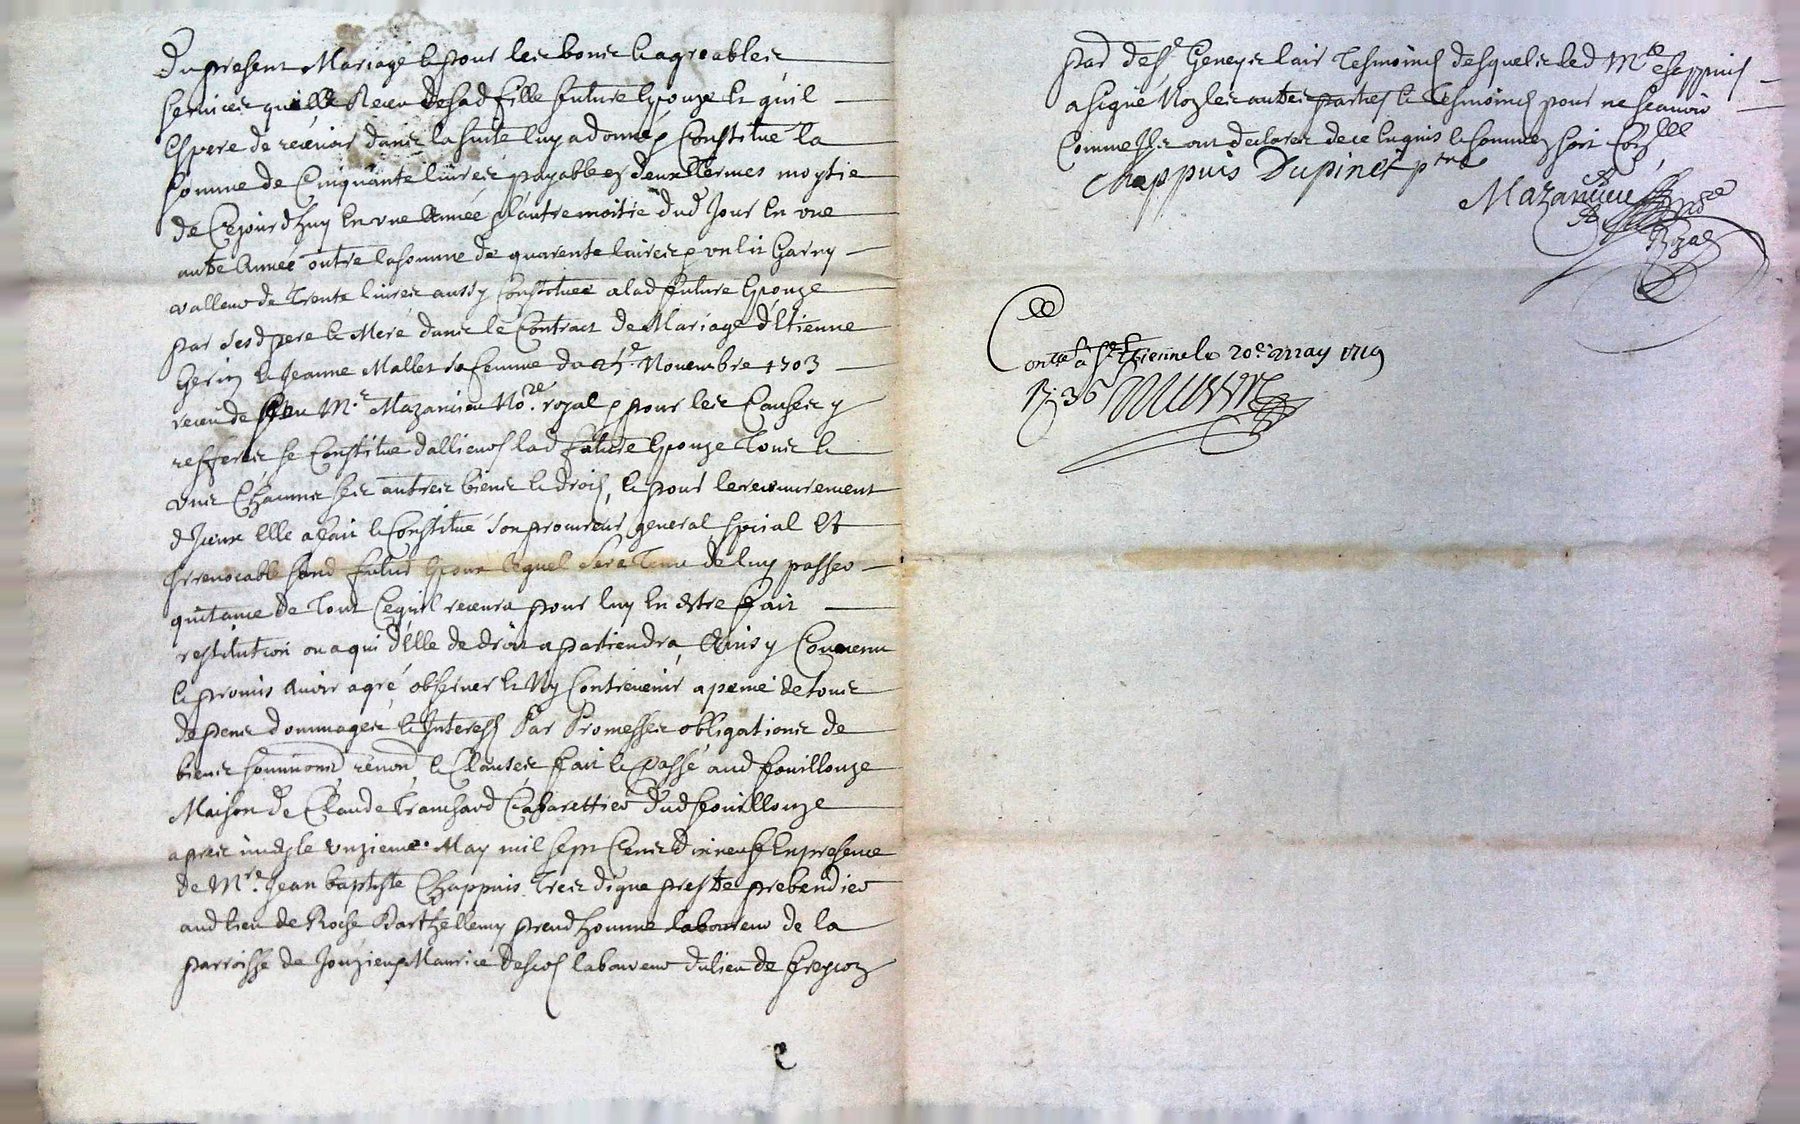 Du present Mariage & pour les bons & agreables
services quelle Receu de sad fille future Epouze & quil
Espere de recevoir dans la suite luy a donné & Constitué la
somme de Cinquante livres payable en deux Termes moytie
de Cejourdhuy En une Année & l'autre moitie dud Jour En une
autre Année outre la somme de quarente livres & un lit Garny
valleur de Trente livres aussy Constituée a lad future Epouze
par sesd pere & Mere dans le Contract de Mariage d'Etienne
Gerin & Jeanne Mallet sa femme du 25e Novembre 1703
receu de feu Mr Mazanieu Nore royal & pour les Causes y
refferées se Constitue dallieurs lad future Epouze Tous &
uns Chacuns ses autres biens & droits, & pour le recouvrement
d'Jceux Elle a fait & Constitue son procureur general special Et
Irrevocable sond futur Epoux lequel sera Tenu de luy passer
quitance de Tout Cequil recevra pour luy En estre fait
restitution ou a qui d'Elle de droit apartiendra, Ainsy Convenu
& promis avoir agré observer & Ny Contrevenir a peine de tous
depens dommages & Interests Par Promesses obligations de
biens soumissions renon & Clauses fait & passé aud fouillouze
Maison de Claude Tranchard Cabarettier dud fouillouze
apres midy le unzieme May mil sept Cens dixneuf En presence
de Mre Jean baptiste Chappuis Tres digne prestre prebendier
aud lieu de Roche Barthellemy preudhomme laboureur de la
parroisse de Jouzieux Maurice laboureur du lieu de
par de St Geneys lair Tesmoins desquels led Mre Chappuis
a signé Non les autres parties & Tesmoins pour ne scavoir
Comme Ils ont declarer de ce Enquis & sommez soit Conlle
Chappuis Dupinet ptre
Mazanieu
Nore
Royal
Contlé à St Etienne le 20e may 1719